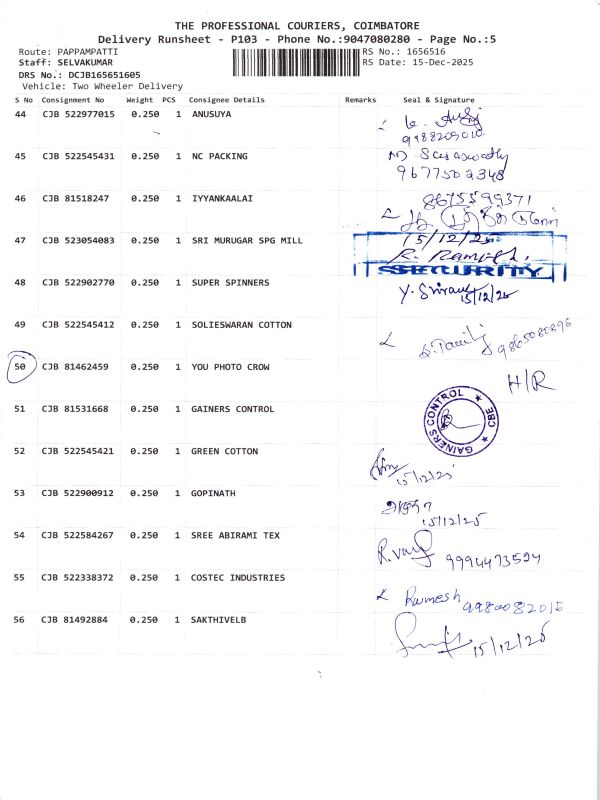 THE PROFESSIONAL COURIERS, COIMBATORE
Delivery Runsheet - P103 - Phone No.:9047080280 - Page No.:5
Route: PAPPAMPATTI
RS No.: 1656516
Staff: SELVAKUMAR
RS Date: 15-Dec-2025
DRS No.: DCJB165651605
Vehicle: Two Wheeler Delivery
S No Consignment No Weight PCS Consignee Details Remarks Seal & Signature
44 CJB 522977015 0.250 1 ANUSUYA
45 CJB 522545431 0.250 1 NC PACKING
M Saraswathy
9677502348
46 CJB 81518247 0.250 1 IYYANKAALAI
8675599371
47 CJB 523054083 0.250 1 SRI MURUGAR SPG MILL
15/12/25
SECURITY
48 CJB 522902770 0.250 1 SUPER SPINNERS
15/12/25
49 CJB 522545412 0.250 1 SOLIESWARAN COTTON
9865080898
50 CJB 81462459 0.250 1 YOU PHOTO CROW
H/R
51 CJB 81531668 0.250 1 GAINERS CONTROL
GAINERS CONTROL ★ CBE ★
52 CJB 522545421 0.250 1 GREEN COTTON
15/12/25
53 CJB 522900912 0.250 1 GOPINATH
15/12/25
54 CJB 522584267 0.250 1 SREE ABIRAMI TEX
9994473594
55 CJB 522338372 0.250 1 COSTEC INDUSTRIES
Ramesh 9980082015
56 CJB 81492884 0.250 1 SAKTHIVELB
15/12/25